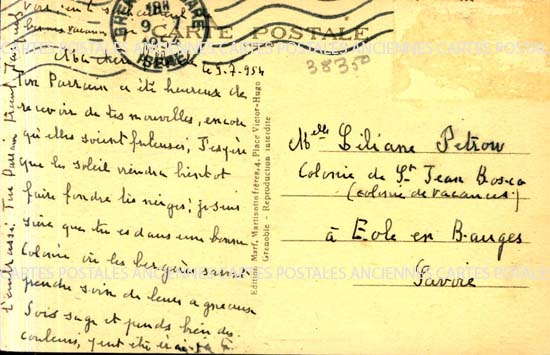 GRENOBLE GARE
18H
9-7
1954
ISERE
CARTE POSTALE
38350
le 9.7.954
Ma chère
Ton Parrain a été heureux de
recevoir de tes nouvelles, encore
qu'elles soient frileuses, J'espère
que le soleil viendra bientôt
faire fondre les neiges; je suis
sûre que tu es dans une bonne
Colonie où les bergères savent
prendre soin de leurs agneaux
Sois sage et prends bien des
couleurs, peut être
t'embrasse, Ton Parrain
Edition Marf, Martinotto frères, 4, Place Victor-Hugo
Grenoble - Reproduction interdite
Melle Liliane Petrow
Colonie de St Jean Bosco
(colonie de vacances)
à Ecole en Bauges
Savoie
CARTES POSTALES ANCIENNES CARTES POSTALES ANCIENNES